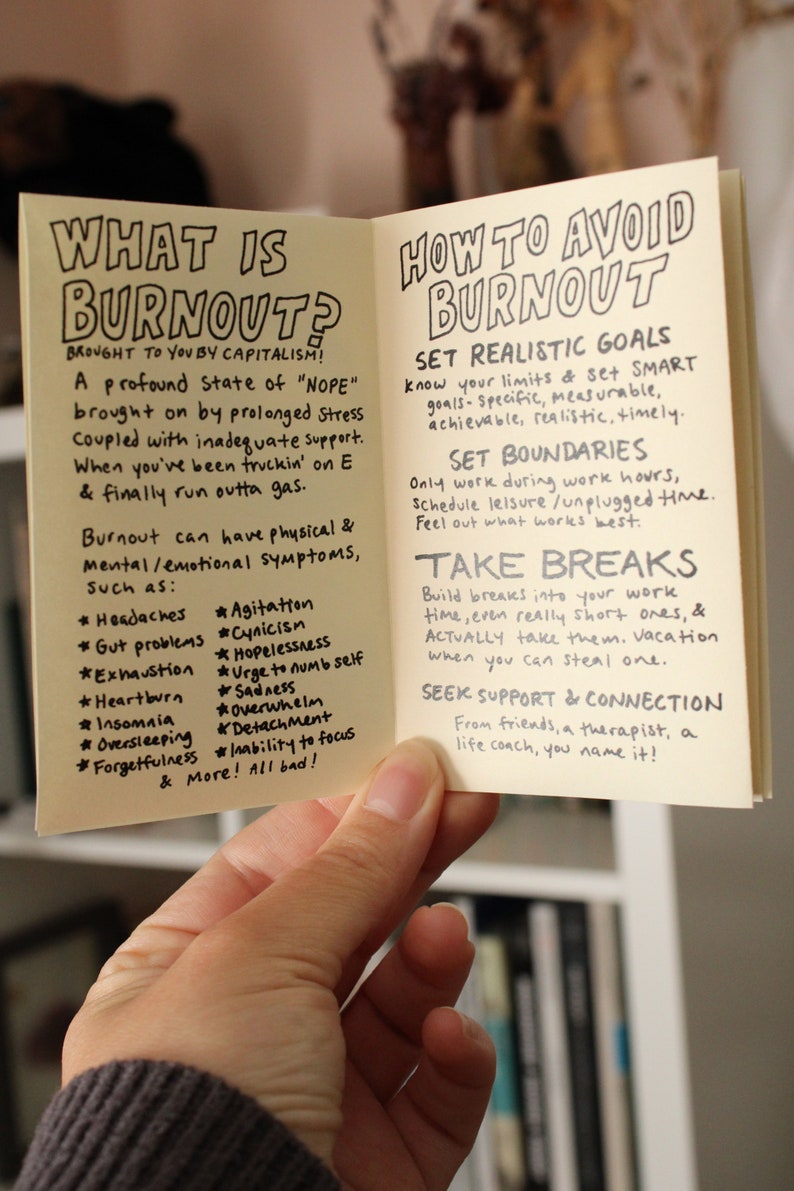 WHAT IS
BURNOUT?
BROUGHT TO YOU BY CAPITALISM!
A profound state of "NOPE"
brought on by prolonged stress
coupled with inadequate support.
When you've been truckin' on E
& finally run outta gas.
Burnout can have physical &
mental/emotional symptoms,
such as:
★ Headaches
★ Gut problems
★ Exhaustion
★ Heartburn
★ Insomnia
★ Oversleeping
★ Forgetfulness
★ Agitation
★ Cynicism
★ Hopelessness
★ Urge to numb self
★ Sadness
★ Overwhelm
★ Detachment
★ Inability to focus
& More! All bad!
HOW TO AVOID
BURNOUT
SET REALISTIC GOALS
Know your limits & set SMART
goals- specific, measurable,
achievable, realistic, timely.
SET BOUNDARIES
Only work during work hours,
schedule leisure/unplugged time.
Feel out what works best.
TAKE BREAKS
Build breaks into your work
time, even really short ones, &
ACTUALLY take them. Vacation
when you can steal one.
SEEK SUPPORT & CONNECTION
From friends, a therapist, a
life coach, you name it!